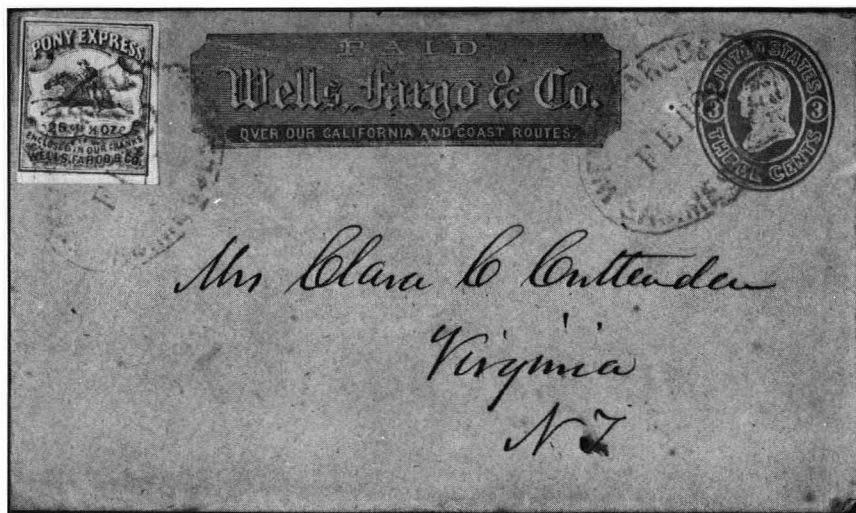 PONY EXPRESS
25 cts ½ OZ.
ENCLOSED IN OUR FRANKS
WELLS, FARGO & CO.
PAID
Wells, Fargo & Co.
OVER OUR CALIFORNIA AND COAST ROUTES.
UNITED STATES
3 3
THREE CENTS
Mrs Clara C Cruttenden
Virginia
N T